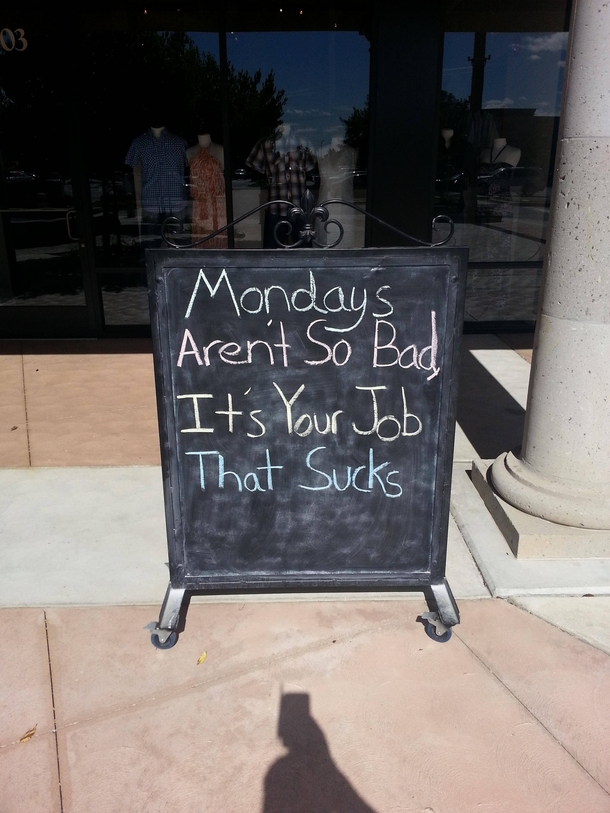 03
Mondays
Aren't So Bad,
It's Your Job
That Sucks